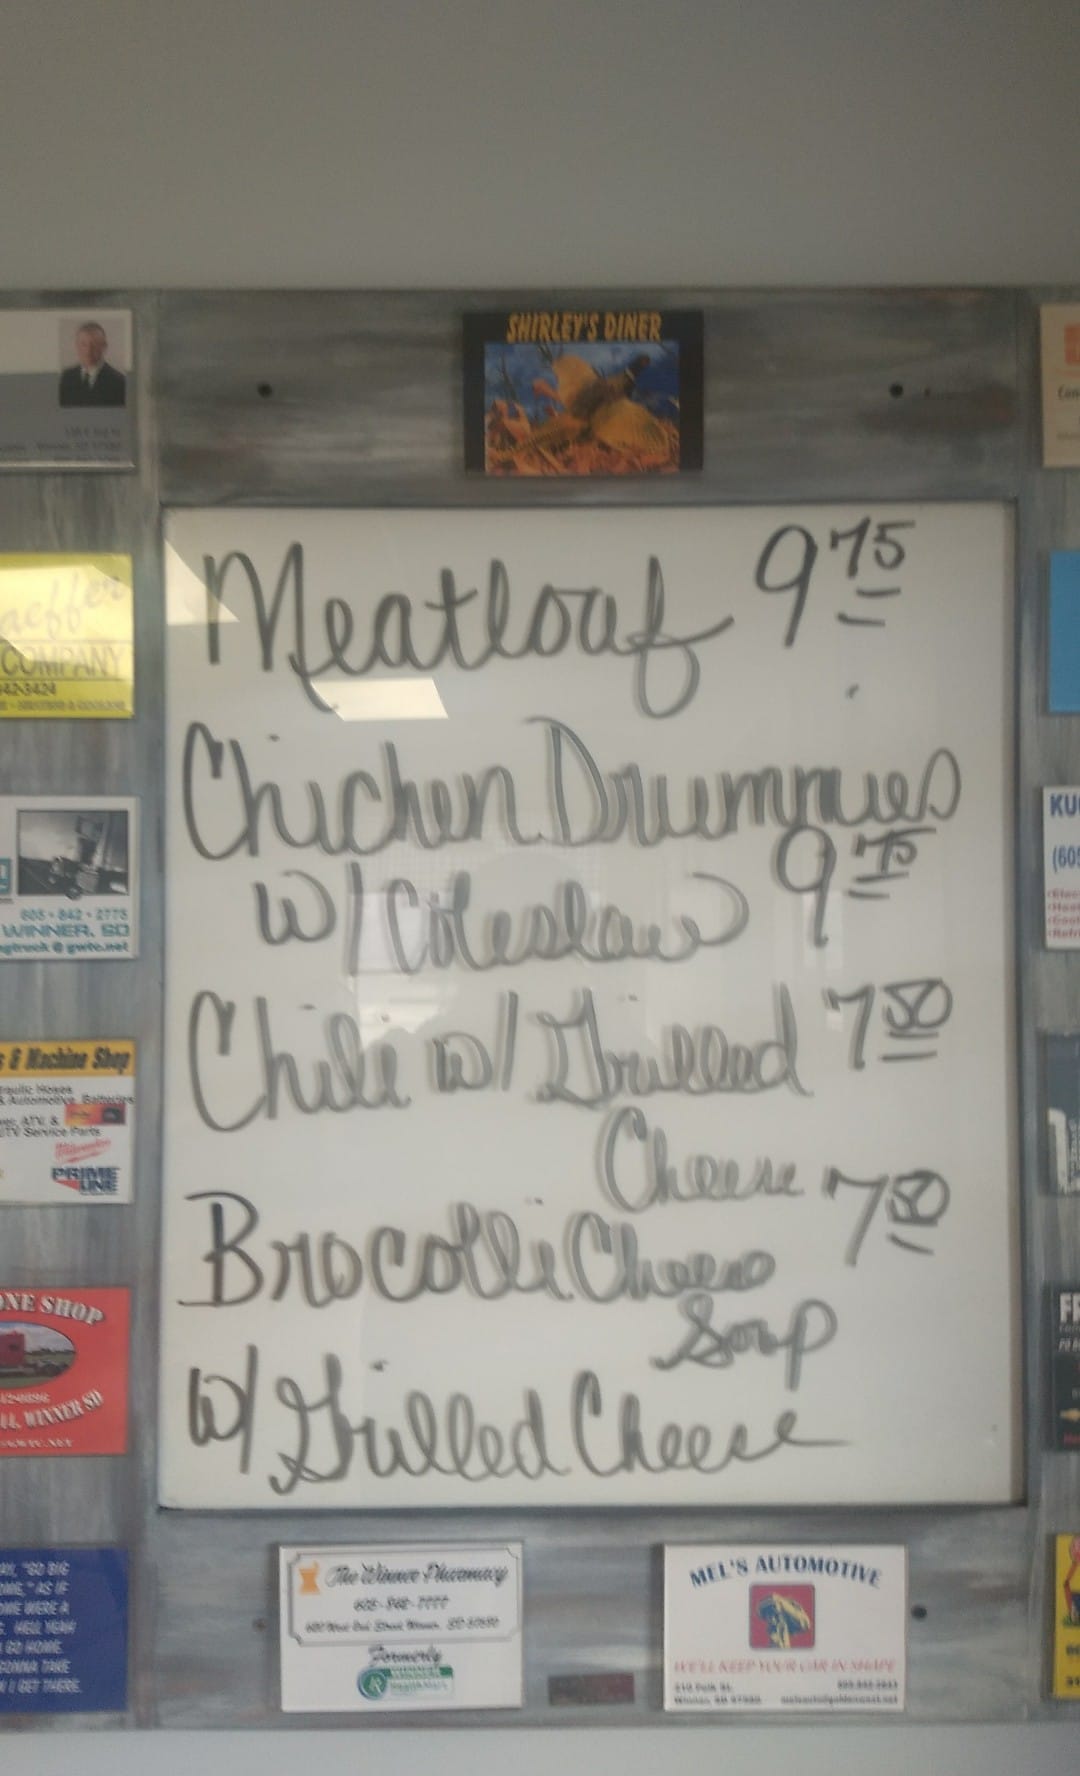 SHIRLEY'S DINER
Meatloaf 9 75
Chicken Drummies
w/ Coleslaw 9 75
Chili w/ Grilled 7 50
Cheese
Brocolli Cheese 7 50
Soup
w/ Grilled Cheese
aeffer
COMPANY
42-3424
605 • 842 • 2775
WINNER, SD
gtruck @ gwtc.net
s & Machine Shop
raulic Hoses
& Automotive Batteries
ATV &
UTV Service Parts
Milwaukee
PRIME
LINE
ONE SHOP
WINNER SD
"GO BIG
OME," AS IF
OME WERE A
HELL YEAH
GO HOME.
GONNA TAKE
N I GET THERE.
The Winner Pharmacy
605-842-7777
Formerly
MEL'S AUTOMOTIVE
WE'LL KEEP YOUR CAR IN SHAPE
Con
KU
(605
•Elec
•Heat
•Cool
•Refri
FR